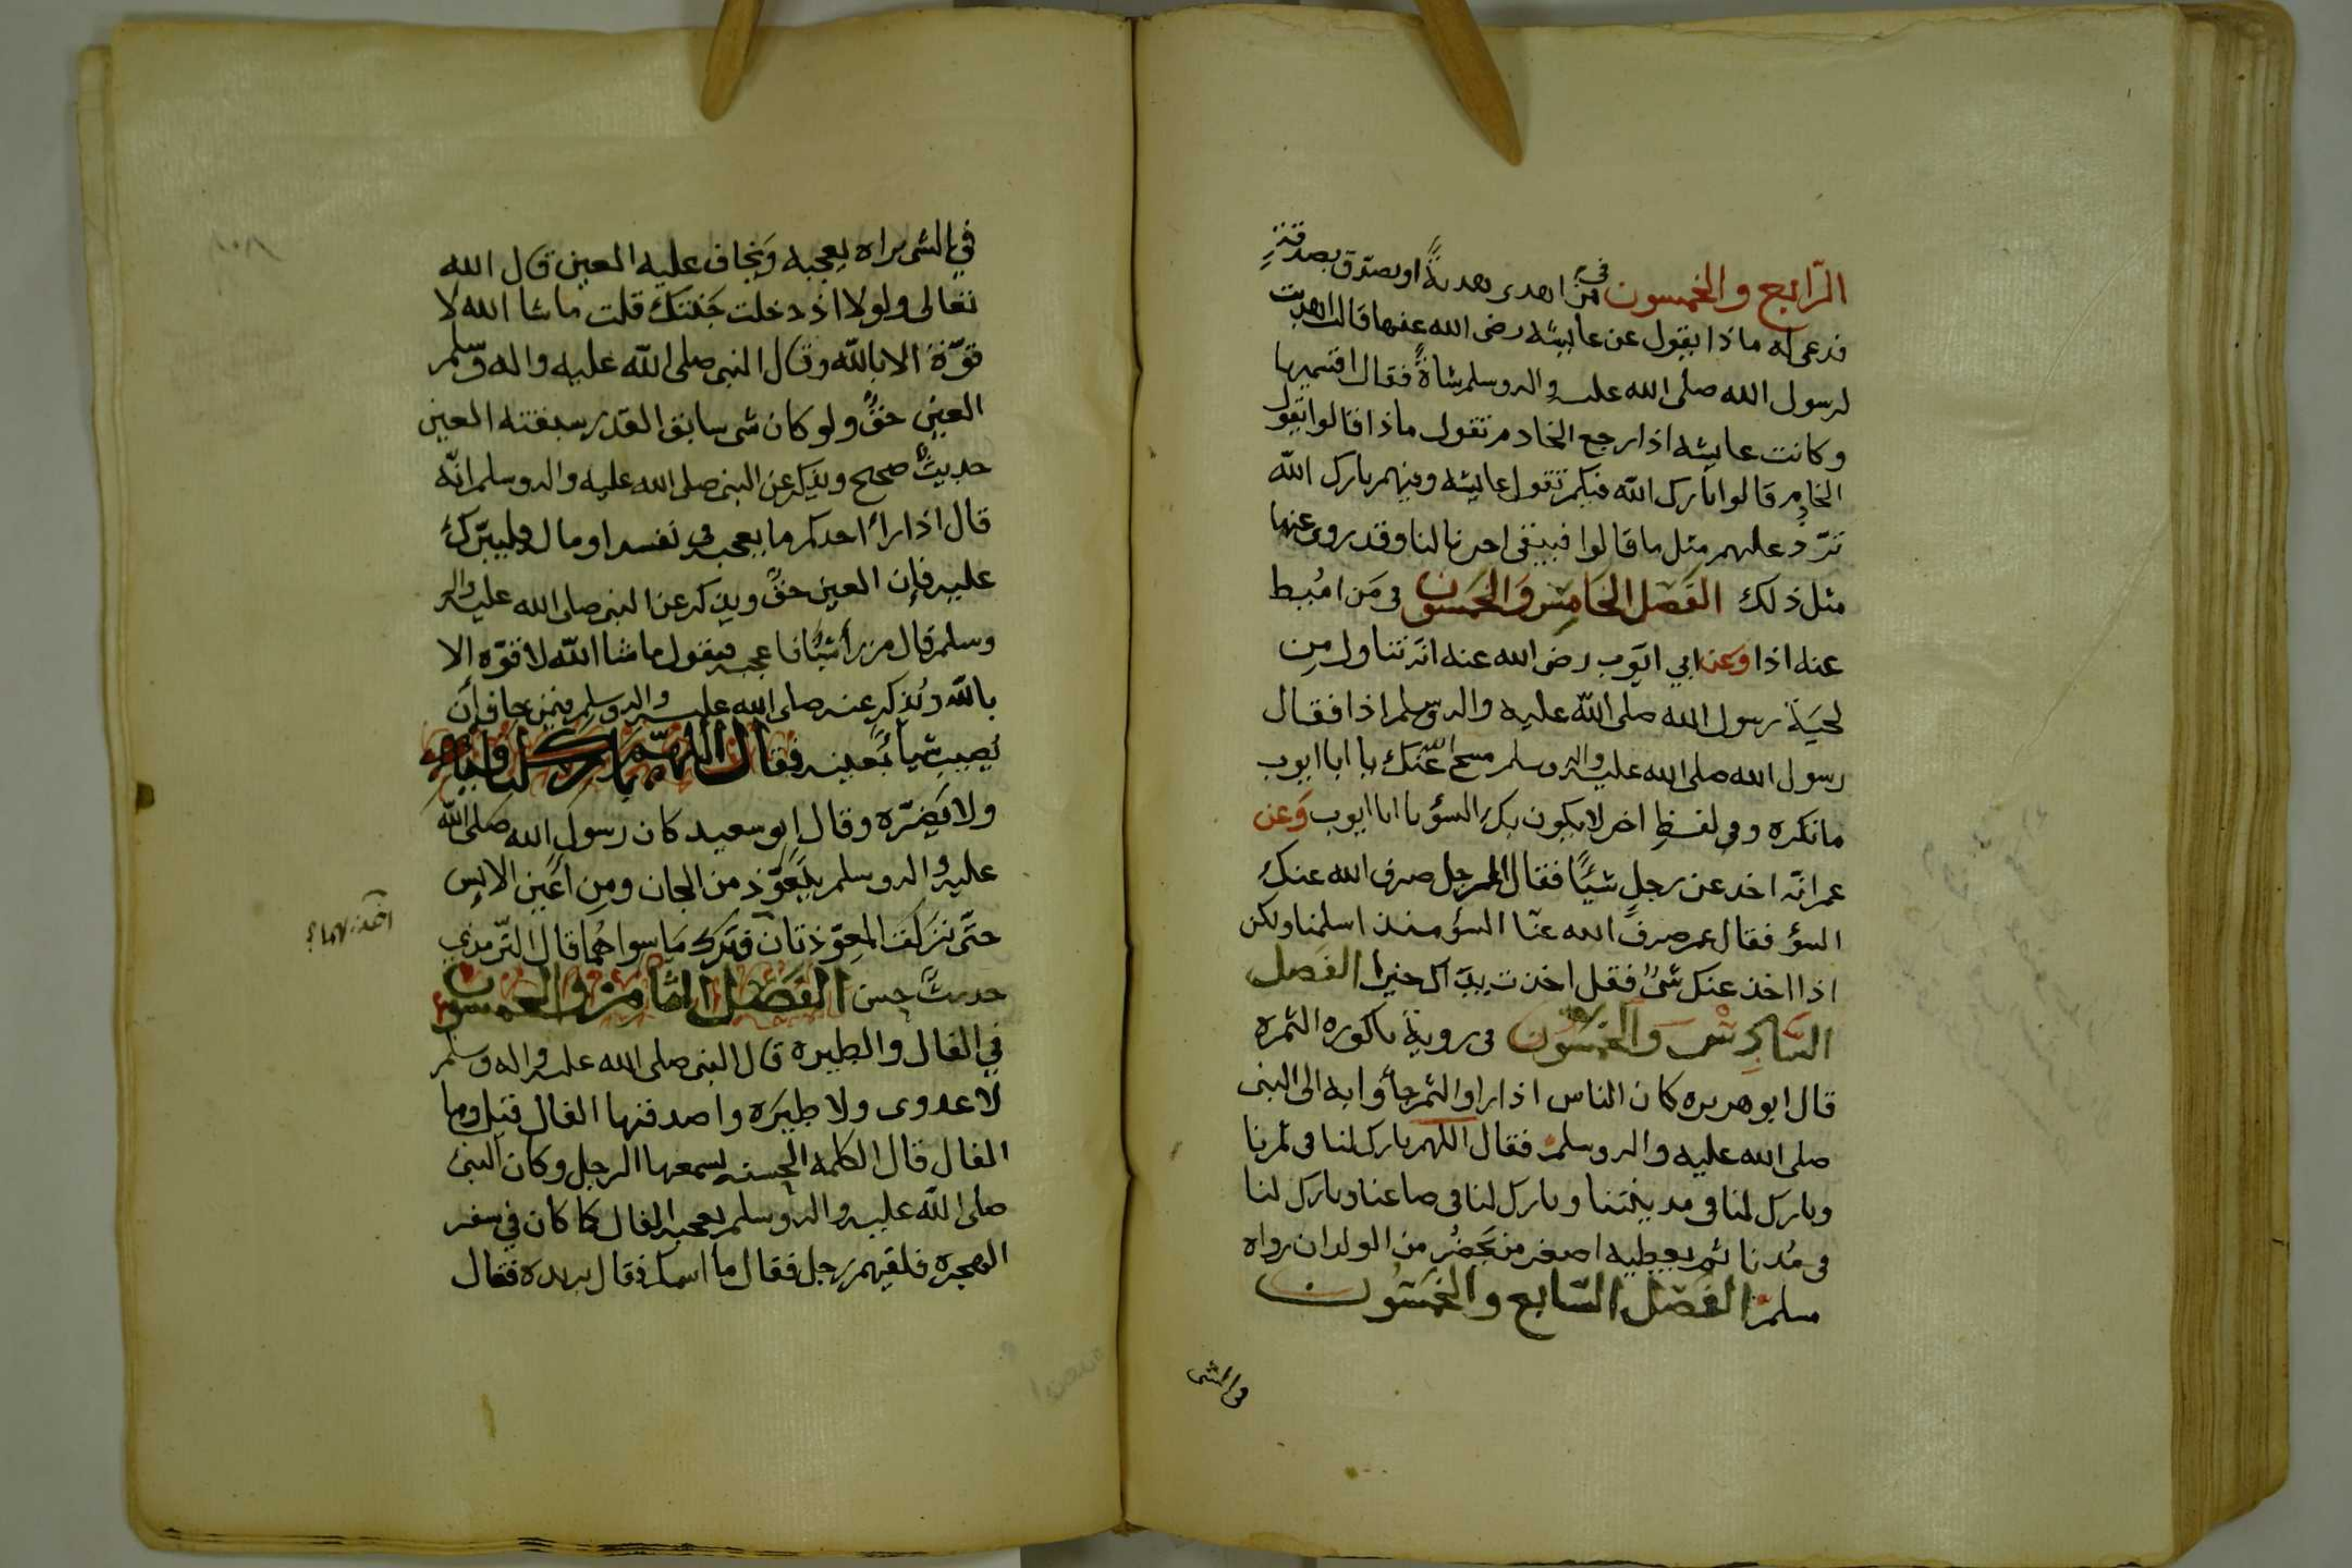 الرّابع والخمسون في من اهدى هديةً او تصدق بصدقة
فدعى له ماذا يقول عن عايشه رضى الله عنها قالت اهديت
لرسول الله صلى الله عليه واله وسلم شاةً فقال اقسميها
وكانت عايشه اذا رجع الخادم تقول ماذا قالوا يقول
الخادم قالوا بارك الله فيكم تقول عايشه وفيهم بارك الله
نردّ عليهم مثل ما قالوا فيبقى اجرنا لنا وقد روى عنها
مثل ذلك الفَصَل الخامِس وَالخمسون في مَن امُيط
عنه اذا وعن ابي ايوّب رضى الله عنه انّه تناول من
لحيَة رسول الله صلى الله عليه واله وسلم اذا فقال
رسول الله صلى الله عليه واله وسلم مسح الله عنك يا ابا ايوب
ما تكره وفي لفظٍ اخر لا يكون بك السؤ يا ابا ايوب وَعن
عمر انّه اخد عن رجلٍ شيئًا فقال الرجل صرف الله عنك
السؤ فقال عمر صرف الله عنّا السؤ منذ اسلمنا ولكن
اذا اخذ عنك شئٌ فقل اخذت يداك خيرا الفَصل
السّادِس وَالخمسون في روية باكوره الثمره
قال ابو هريره كان الناس اذا راو الثمر جأوا به الى النبى
صلى الله عليه واله وسلم فقال اللهم بارك لنا في ثمرنا
وبارك لنا في مدينتنا وبارك لنا في صاعنا وبارك لنا
في مُدنا ثم يعطيه اصغر من يَحضُر من الولدان رواه
مسلم الفَصْل السّابع والخمسون
في الشى
في الشى يراه يعجبه وَيخاف عليه العين قال الله
تعالى ولولا اذ دخلت جَنتك قلت ما شا الله لا
قوّة الا بالله وقال النبى صلى الله عليه واله وسلم
العين حقٌ ولو كان شى سابق القدر سبقته العين
حديثٌ صحيح ويذكر عن النبى صلى الله عليه واله وسلم انّه
قال اذا رأ احدكم ما يعجبه في نفسه او ماله فليبرّك
عليه فإن العين حقٌ ويذكر عن النبى صلى الله عليه واله
وسلم قال من رأ شيًأ فاعجبه فيقول ما شا الله لا قوّه إلا
بالله ويُذكر عنه صلى الله عليه واله وسلم فيمن خاف أن
يُصيب شيأ بَعينه فقال اللهمّ بارك لنا فيه
ولا تَضرّه وقال ابو سعيد كان رسول الله صلى الله
عليه واله وسلم يَتعَوّذ من الجان ومِن اعَين الانِس
حتّى نزَلَت المعِوّذتان فترك مَا سواهُما قال التّرمذي
حديثٌ حسن الفَصَل الثامن والخمسون
في الفال والطيره قال النبى صلى الله عليه واله وسلم
لا عدوى ولا طيَره واصدقها الفال قيل وما
الفال قال الكلمه الحسنه يسمعها الرجل وكان النبى
صلى الله عليه واله وسلم يعجبه الفال كما كان في سفر
الهجره فلقيهم رجل فقال ما اسمك فقال بريده فقال